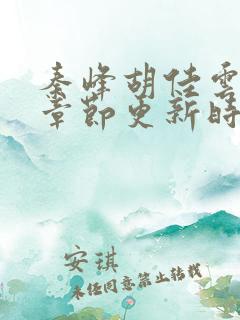 秦峰胡佳雲
章節更新時
安琪
未經同意禁止轉載